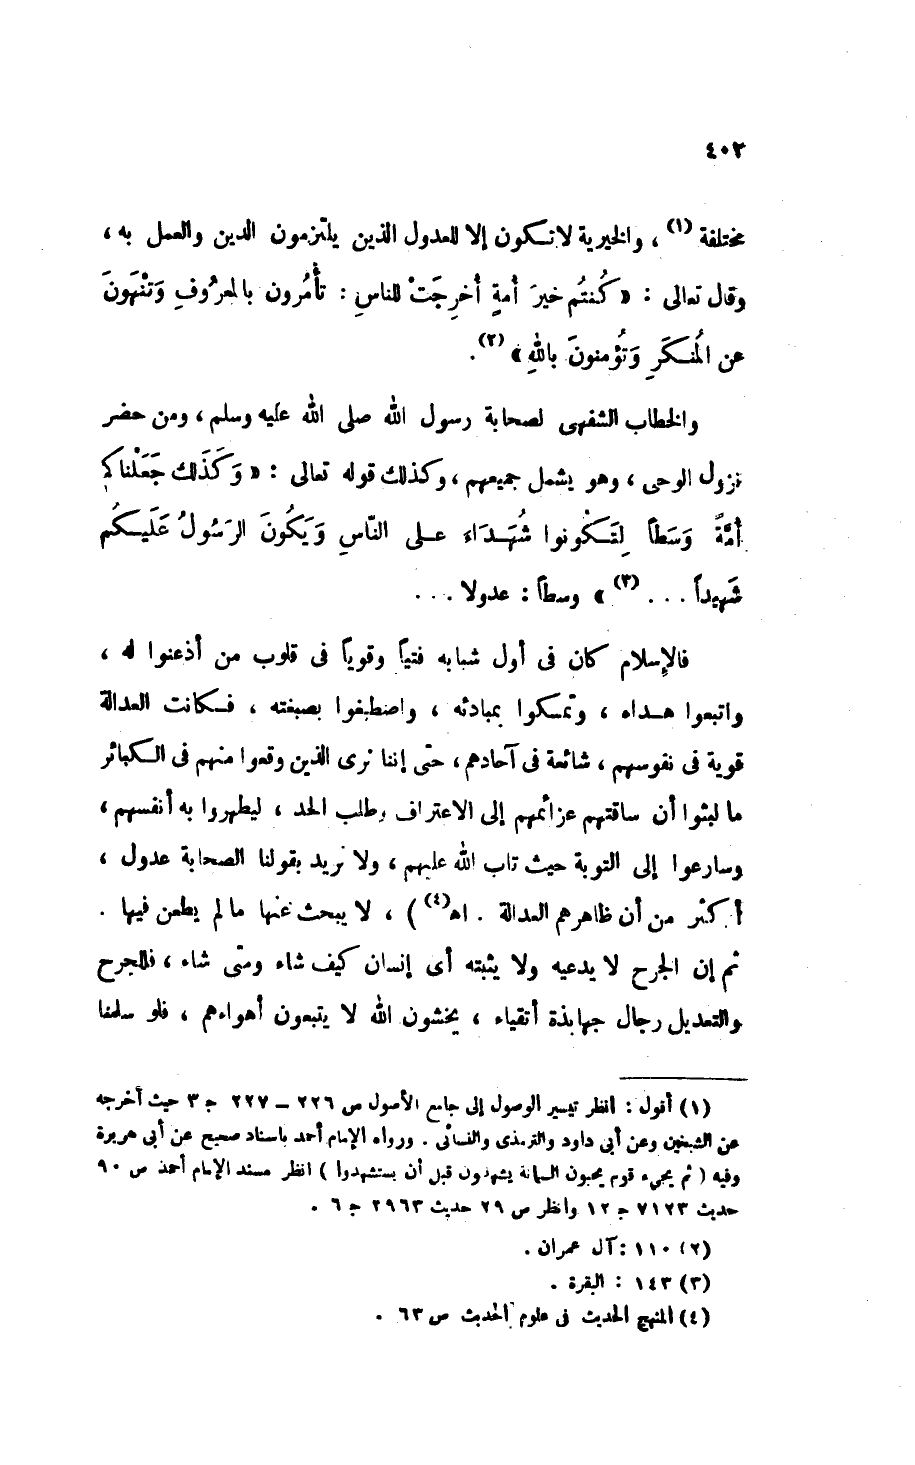 ٤٠٢
مختلفة (١) ، والخيرية لا تكون إلا للعدول الذين يلتزمون الدين والعمل به ،
وقال تعالى : « كُنتُم خيرَ أمةٍ أخرِجَتْ للناسِ : تأمُرون بالمعرُوفِ وَتَنْهَونَ
عن المُنكَرِ وَتُؤمنونَ باللهِ » (٢) .
والخطاب الشفهى لصحابة رسول الله صلى الله عليه وسلم ، ومن حضر
نزول الوحى ، وهو يشمل جميعهم ، وكذلك قوله تعالى : « وَكَذَلك جَعَلْناكُم
أُمَّةً وَسَطاً لِتَكُونوا شُهَدَاءَ على النّاسِ وَيَكُونَ الرَسُولُ عَلَيكُم
شَهِيداً . . . (٣) » وسطاً : عدولا . . .
فالإسلام كان فى أول شبابه فتياً وقوياً فى قلوب من أذعنوا له ،
واتبعوا هداه ، وتمسكوا بمبادئه ، واصطبغوا بصبغته ، فكانت العدالة
قوية فى نفوسهم ، شائعة فى آحادهم ، حتى إننا نرى الذين وقعوا منهم فى الكبائر
ما لبثوا أن ساقتهم عزائمهم إلى الاعتراف وطلب الحد ، ليطهروا به أنفسهم ،
وسارعوا إلى التوبة حيث تاب الله عليهم ، ولا نريد بقولنا الصحابة عدول ،
أكثر من أن ظاهرهم العدالة . اه (٤) ) ، لا يبحث عنها مالم يطعن فيها .
ثم إن الجرح لا يدعيه ولا يثبته أى إنسان كيف شاء ومتى شاء ، فللجرح
والتعديل رجال جهابذة أتقياء ، يخشون الله لا يتبعون أهواءهم ، فلو سلمنا
(١) أقول : انظر تيسير الوصول إلى جامع الأصول ص ٢٢٦ – ٢٢٧ ج ٣ حيث أخرجه
عن الشيخين وعن أبى داود والترمذى والنسائى . ورواه الإمام أحمد بإسناد صحيح عن أبى هريرة
وفيه ( ثم يجىء قوم يحبون السمانة يشهدون قبل أن يستشهدوا ) انظر مسند الإمام أحمد ص ٩٠
حديث ٧١٢٣ ج ١٢ وانظر ص ٢٩ حديث ٢٩٦٣ ج ٦ .
(٢) ١١٠ : آل عمران .
(٣) ١٤٣ : البقرة .
(٤) المنهج الحديث فى علوم الحديث ص ٦٣ .